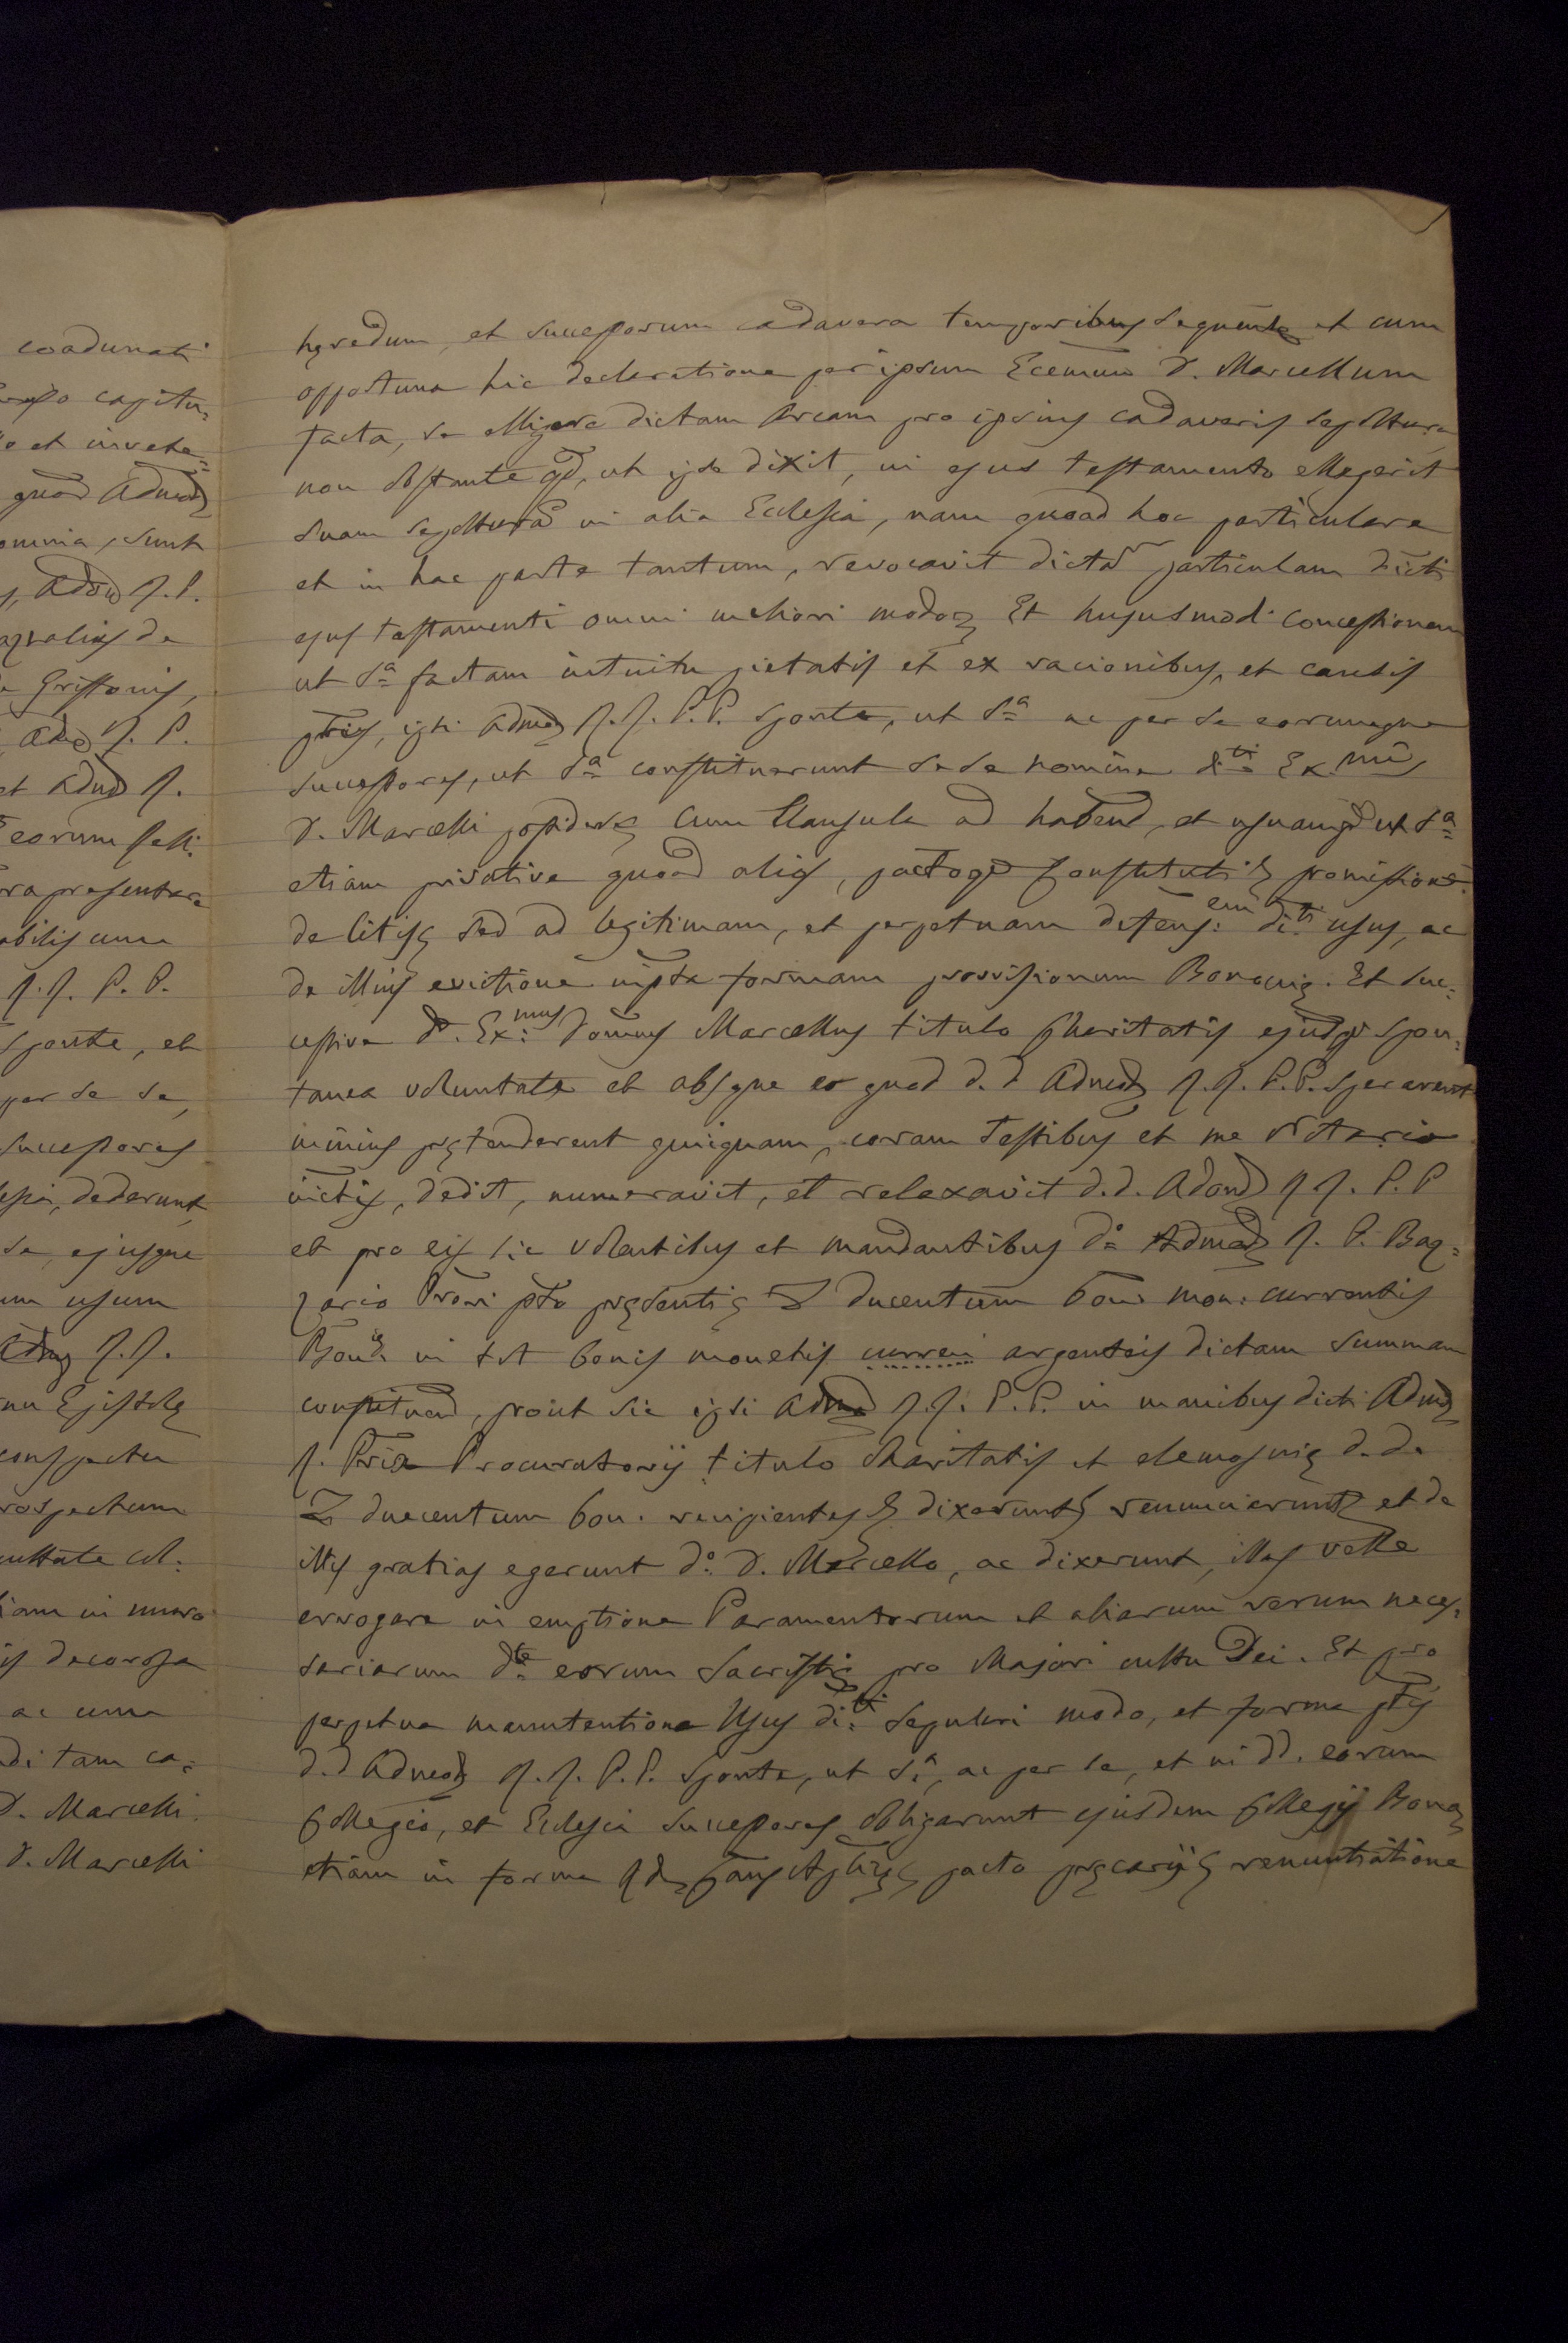 coadunati
capitu,
et invete=
quod Admod
omnia, sunt
Adm R. P.
de
Griffonis,
Adm R. P.
et Admd R.
eorum
repræsentare
abilis una
R. R. P. P.
sponte, et
per se se,
successores
dederunt,
se, ejusque
usum
Adm R. R.
Epistolę
conspectu
prospectum
in muro
decorosa
ac una
tam ca=
D. Marcelli
D. Marcelli
hęredum, et successorum cadavera temporibus sequent et cum
opportuna hic declaratione per ipsum Ecemum D. Marcellum
facta, se elligere dictam Arcam pro ipsius cadaveris sepoltura
non obstante qd, ut ipse dixit, in ejus testamento ellegerit
suam sepolturã in alia Ecclesia, nam quoad hoc particulare
et in hac parte tantum, revocavit dictã particulam dicti
ejus testamenti omni meliori modo Et hujusmodi concessionem
ut Sª factam intuitu pietatis et ex racionibus, et causis
ptis, ipsi Admod R. R. P. P. sponte, ut Sª ac per se eorumque
successores, ut Sª constituerunt se se nomine dti Ex.mi
D. Marcelli possidere Cum Clausula ad habend, et usumqd ut Sª
etiam privative quoad alios, pactoqe Constituti promissione
de litis sed ad legitimam, et perpetuam defens:em di:ti usus, ac
de illius evictione iuxta formam provisionum Bononię. Et suc=
cessive D. Ex:mus Domnus Marcellus titulo Charitatis ejusdqe spon=
tanea voluntate et absque eo quod d. d Admod R. R. P. P. sperarent
minus prętenderent quiquam, coram Testibus et me Notario
inctis, dedit, numeravit, et relaxavit d. d. Admod R R. P. P
et pro eis sic volentibus et mandantibus dº Admod R. P. Baz=
zario Prori pto pręsenti ducentum bon: mon: currentis
Bon. in tot bonis monetis curren argenteis dictam summam
constituend, prout sic ipsi Admd R. R. P. P. in manibus dicti Admd
R. Pris Procuratorij titulo Charitatis et elemosinę d. da
ducentum bon. recipientes dixerunt renunciarunt et de
illis gratias egerunt dº: D. Marcello, ac dixerunt, illas velle
errogare in emptione Paramentorum et aliarum rerum neces=
sariarum dte eorum Sacristię pro Majori cultu Dei. Et pro
perpetua manutentione Usus di:ti Sepulcri modo, et forma ptis
d. d Admod R. R. P. P. sponte, ut Sª, ac per se, et in dd. eorum
Collegio, et Ecclesia successores obligarunt ejusdem Collegij Bona
etiam in forma pacto pręcarij renuntiatione